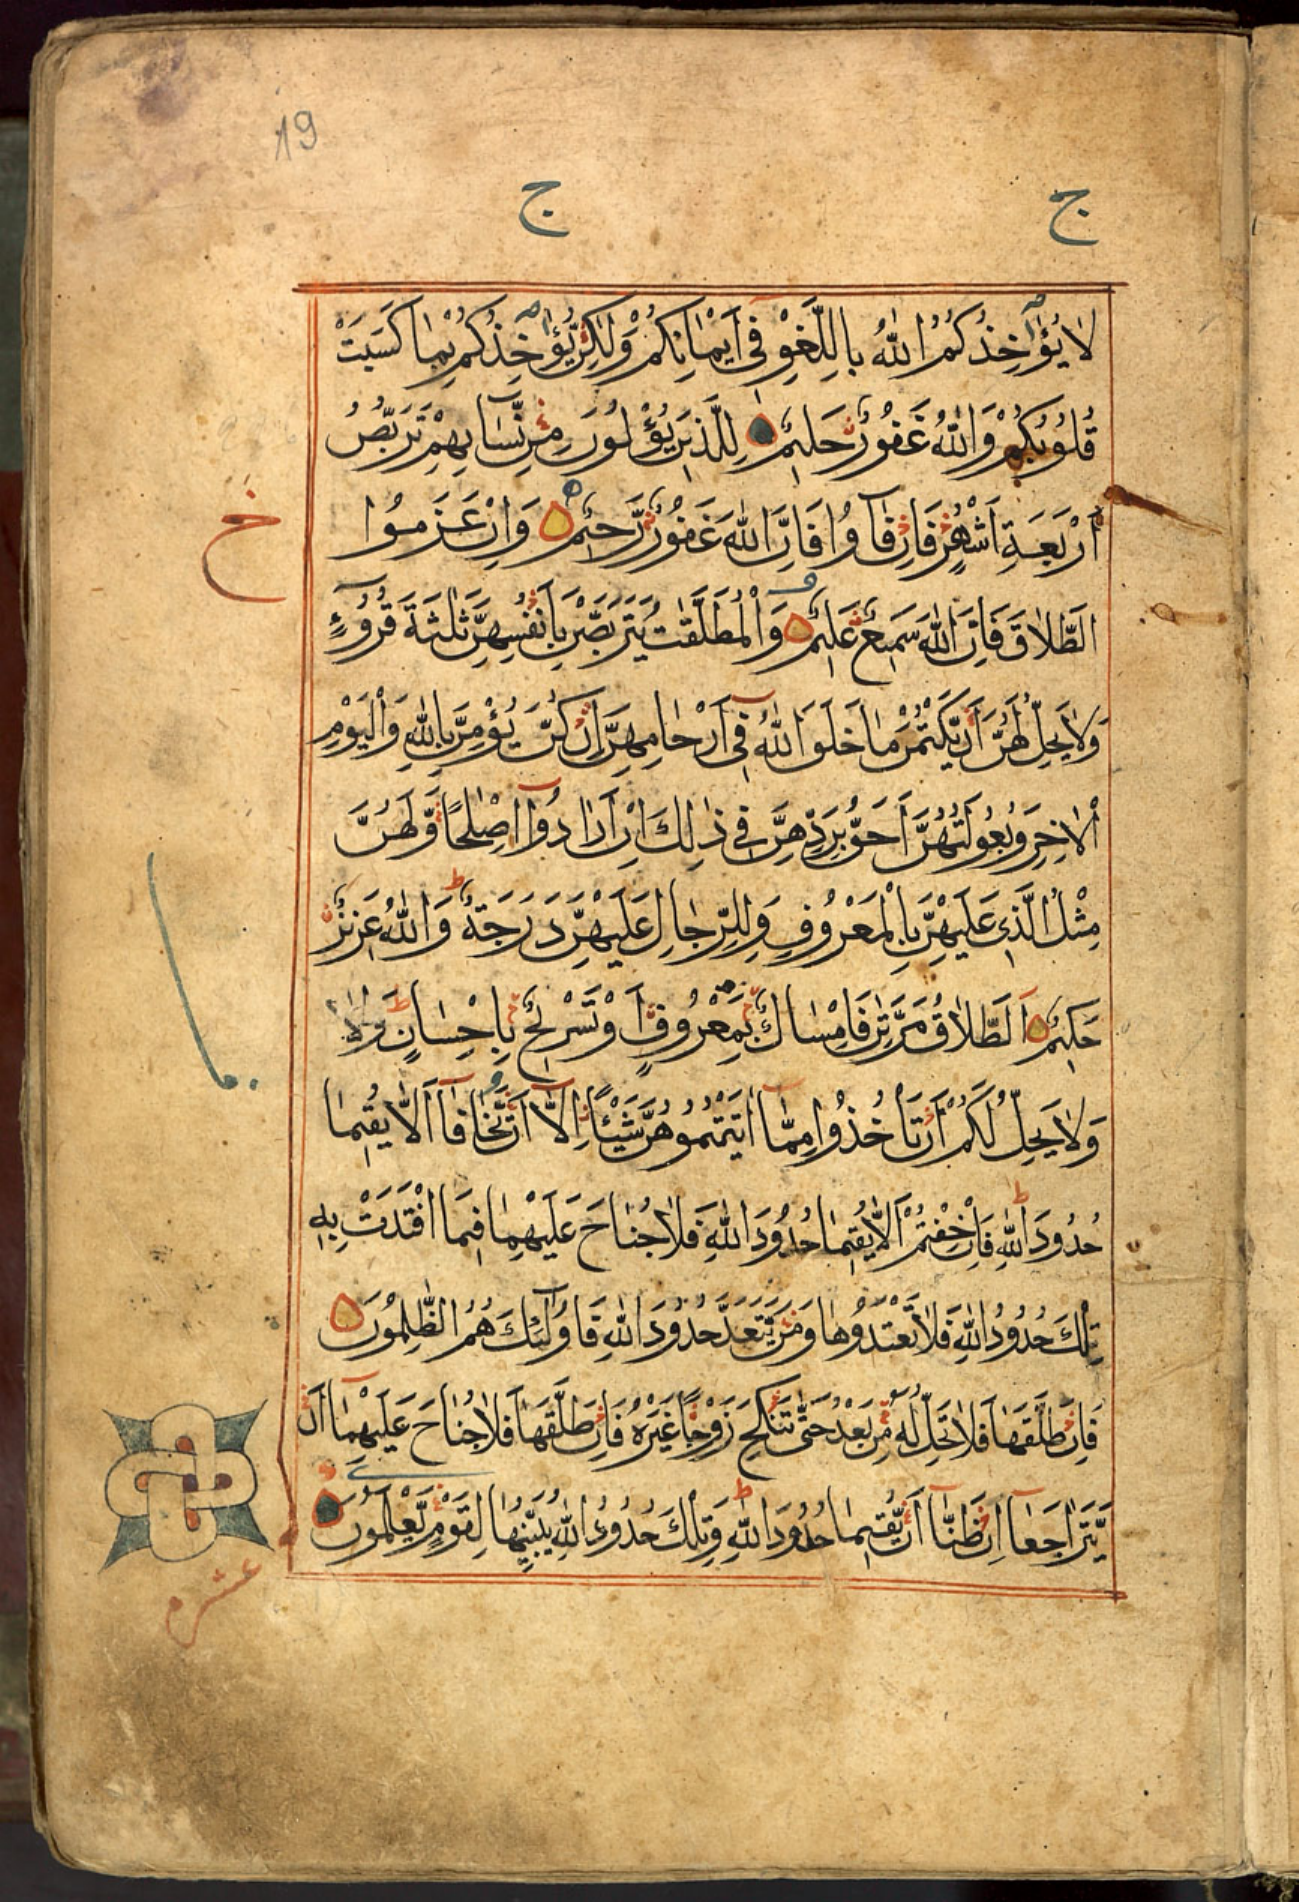 19
ج ج
لَا يُؤَاخِذُكُمُ اللّٰهُ بِاللَّغْوِ فِي أَيْمَانِكُمْ وَلٰكِنْ يُؤَاخِذُكُمْ بِمَا كَسَبَتْ
قُلُوبُكُمْ وَاللّٰهُ غَفُورٌ حَلِيمٌ لِلَّذِينَ يُؤْلُونَ مِنْ نِّسَآئِهِمْ تَرَبُّصُ
أَرْبَعَةِ أَشْهُرٍ فَإِنْ فَآؤُا فَإِنَّ اللّٰهَ غَفُورٌ رَّحِيمٌ وَإِنْ عَزَمُوا
خ
الطَّلَاقَ فَإِنَّ اللّٰهَ سَمِيعٌ عَلِيمٌ وَالْمُطَلَّقٰتُ يَتَرَبَّصْنَ بِأَنْفُسِهِنَّ ثَلٰثَةَ قُرُوٓءٍ
وَلَا يَحِلُّ لَهُنَّ أَنْ يَّكْتُمْنَ مَا خَلَقَ اللّٰهُ فِي أَرْحَامِهِنَّ إِنْ كُنَّ يُؤْمِنَّ بِاللّٰهِ وَالْيَوْمِ
الْاٰخِرِ وَبُعُولَتُهُنَّ أَحَقُّ بِرَدِّهِنَّ فِي ذٰلِكَ إِنْ أَرَادُوٓا إِصْلٰحًا وَّلَهُنَّ
مِثْلُ الَّذِي عَلَيْهِنَّ بِالْمَعْرُوفِ وَلِلرِّجَالِ عَلَيْهِنَّ دَرَجَةٌ ط وَاللّٰهُ عَزِيزٌ
حَكِيمٌ اَلطَّلَاقُ مَرَّتٰنِ فَإِمْسَاكٌ بِمَعْرُوفٍ أَوْ تَسْرِيحٌ بِإِحْسَانٍ ط وَلَا
وَلَا يَحِلُّ لَكُمْ أَنْ تَأْخُذُوا مِمَّآ اٰتَيْتُمُوهُنَّ شَيْئًا إِلَّآ أَنْ يَّخَافَآ أَلَّا يُقِيمَا
حُدُودَ اللّٰهِ ط فَإِنْ خِفْتُمْ أَلَّا يُقِيمَا حُدُودَ اللّٰهِ فَلَا جُنَاحَ عَلَيْهِمَا فِيمَا افْتَدَتْ بِهِ
تِلْكَ حُدُودُ اللّٰهِ فَلَا تَعْتَدُوهَا وَمَنْ يَّتَعَدَّ حُدُودَ اللّٰهِ فَأُولٰٓئِكَ هُمُ الظّٰلِمُونَ
فَإِنْ طَلَّقَهَا فَلَا تَحِلُّ لَهُ مِنْ بَعْدُ حَتّٰى تَنْكِحَ زَوْجًا غَيْرَهُ فَإِنْ طَلَّقَهَا فَلَا جُنَاحَ عَلَيْهِمَآ أَنْ
يَّتَرَاجَعَآ إِنْ ظَنَّآ أَنْ يُّقِيمَا حُدُودَ اللّٰهِ ط وَتِلْكَ حُدُودُ اللّٰهِ يُبَيِّنُهَا لِقَوْمٍ يَّعْلَمُونَ
عشر